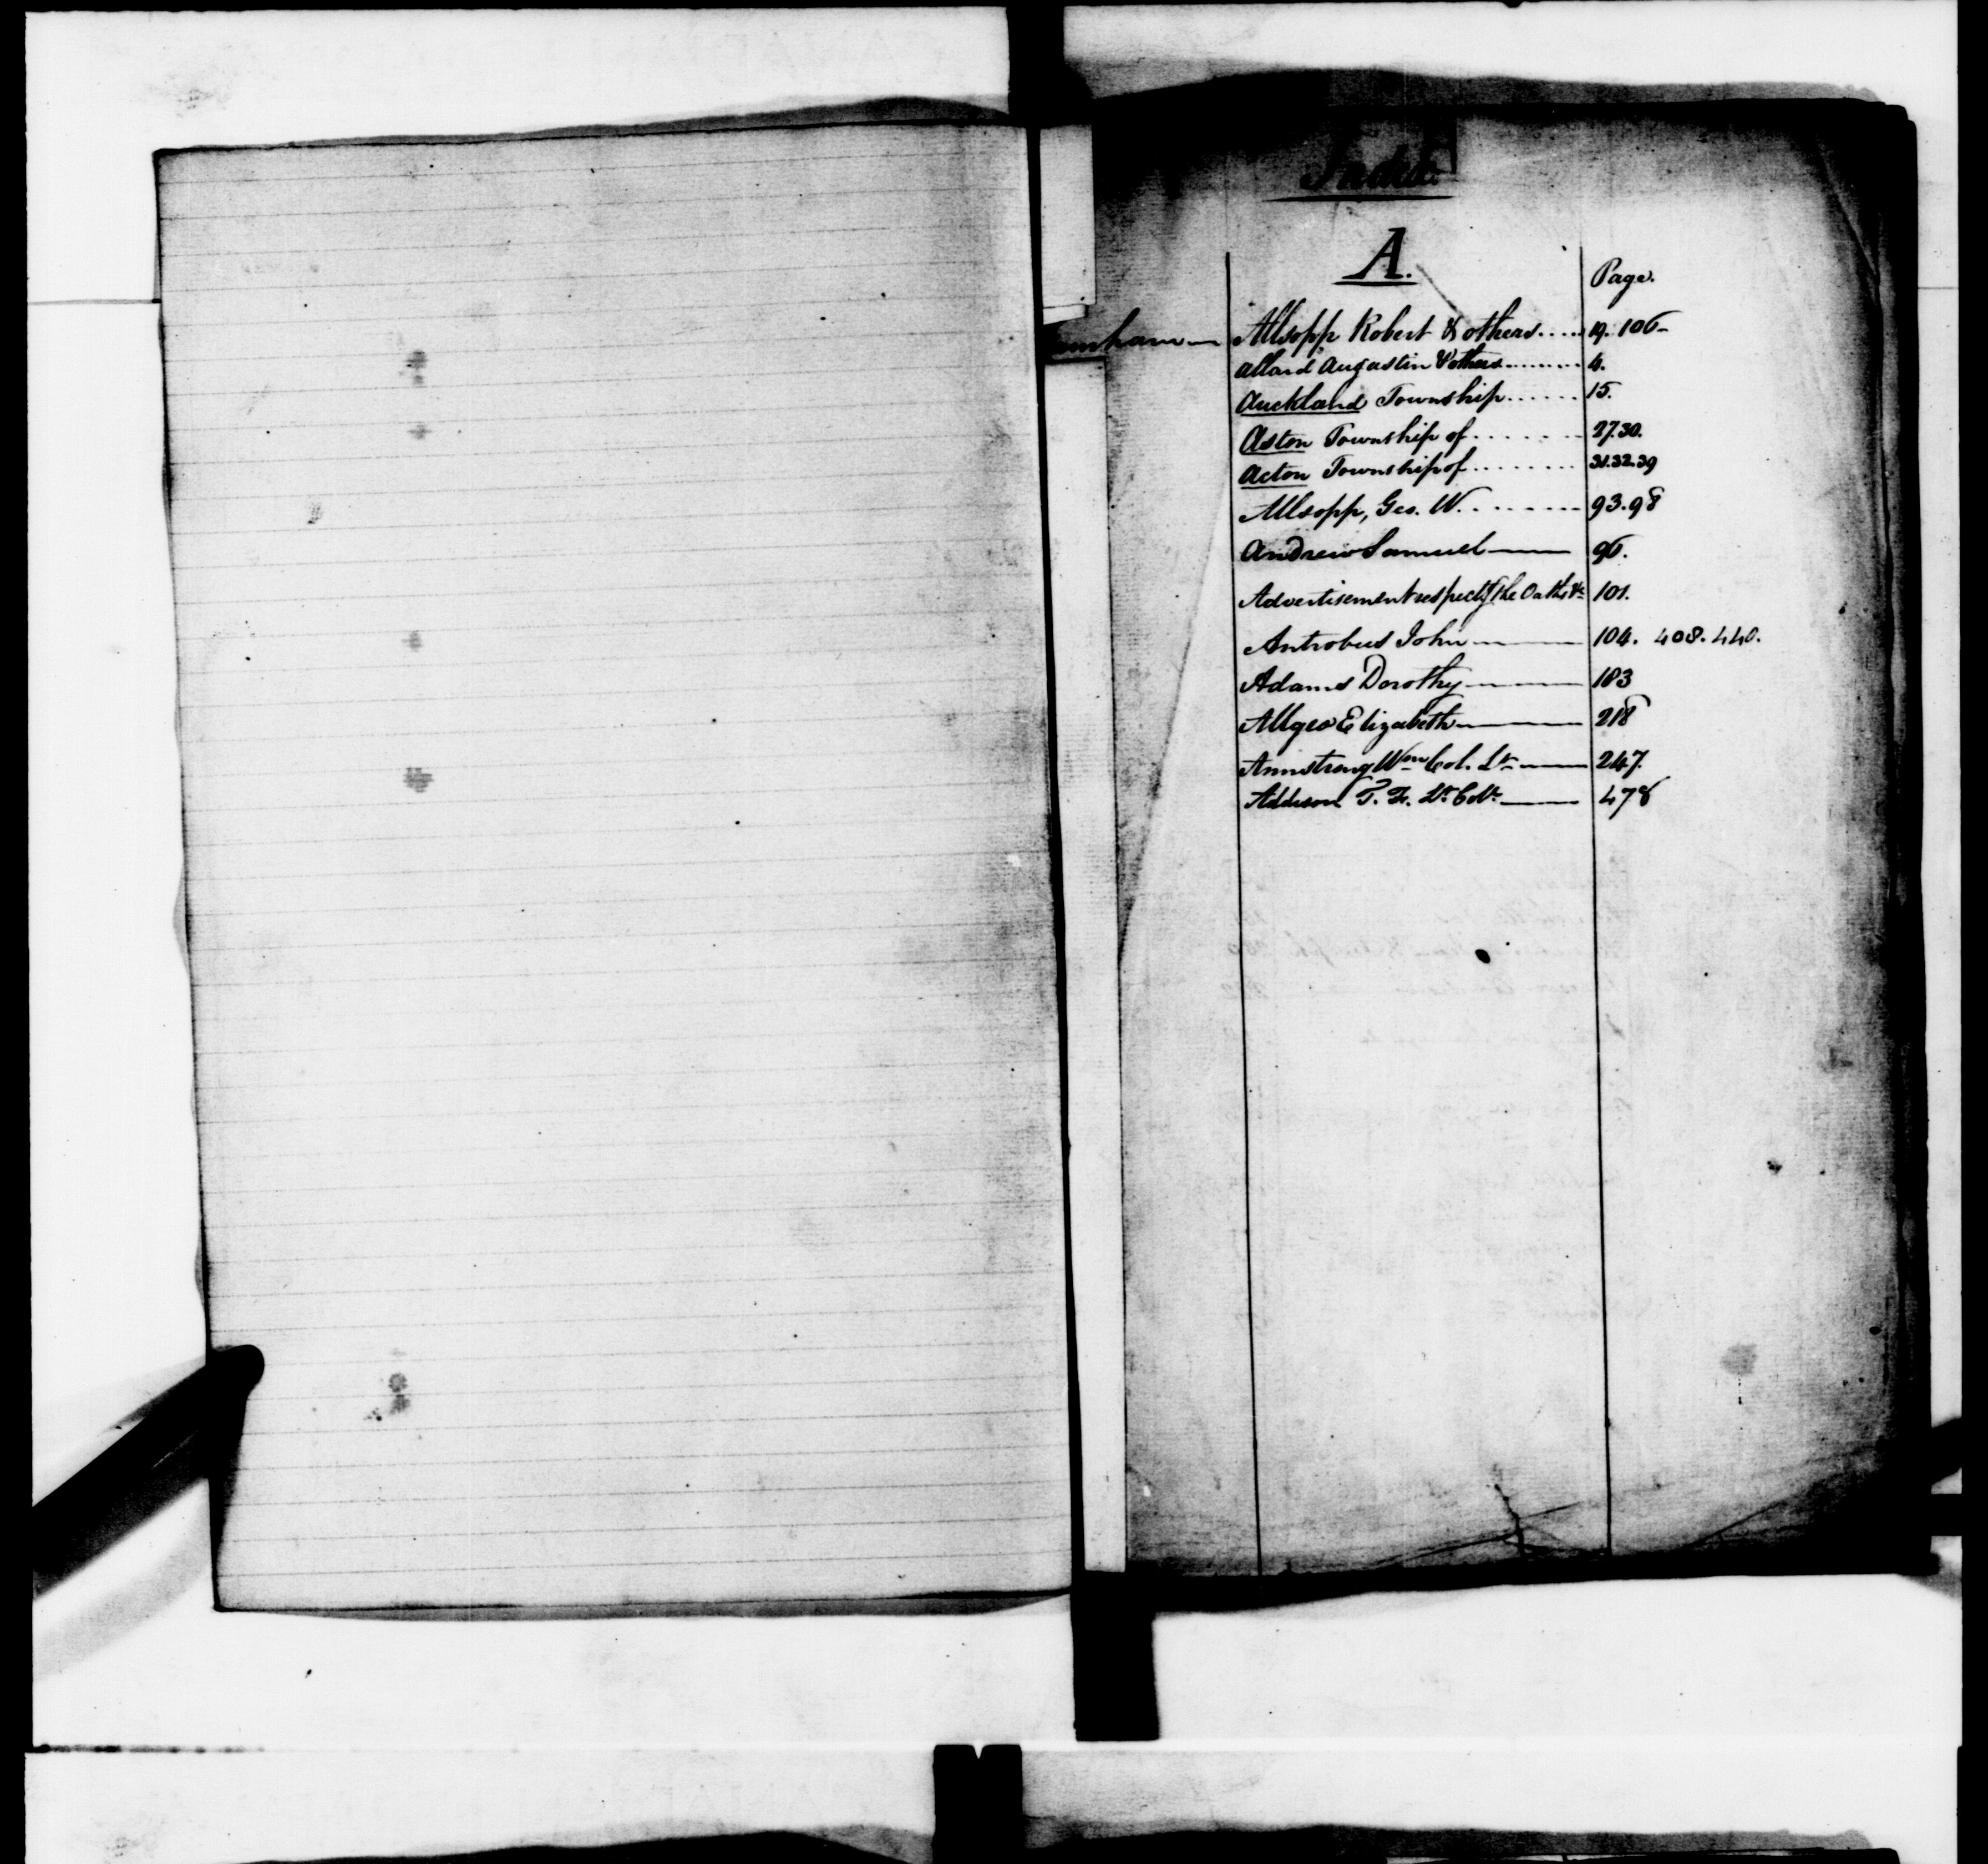 Index
A.
Page.
Allsopp Robert & others..... 19. 106-
Allard Augustin & others........ 4.
Auckland Township...... 15.
Aston Township of....... 27.30.
Acton Township of........ 31.32.39
Allsopp, Geo. W........ 93.98
Andrew Samuel 96.
Advertisement respectg the Oaths &c 101.
Antrobus John 104. 408. 440.
Adams Dorothy 183
Allgeo Elizabeth 218
Armstrong Wm Col. Lt 247.
Addison T. F. Lt Col. 478